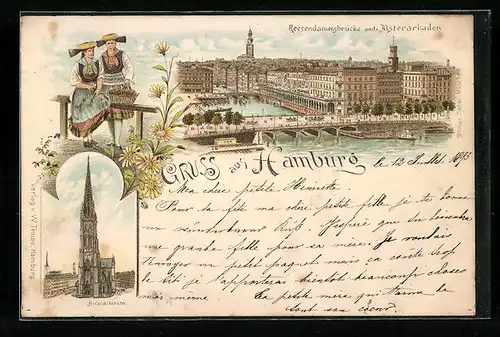 Reesendammsbrücke und Alsterarkaden
Gruss aus Hamburg
le 12 Juillet 1895
Ma chère petite Henriette.
Pour ta fête ma chère petite fille je te donne
un
que tu
une grande fille pour ta mère. Je voulais
t'envoyer un petit paquet mais ça coûte trop
je t'apporterai bientôt beaucoup choses
moi même
Ta petite mère qui t'aime de
tout son cœur.
Nicolaikirche
Verlag v. W. Hamburg